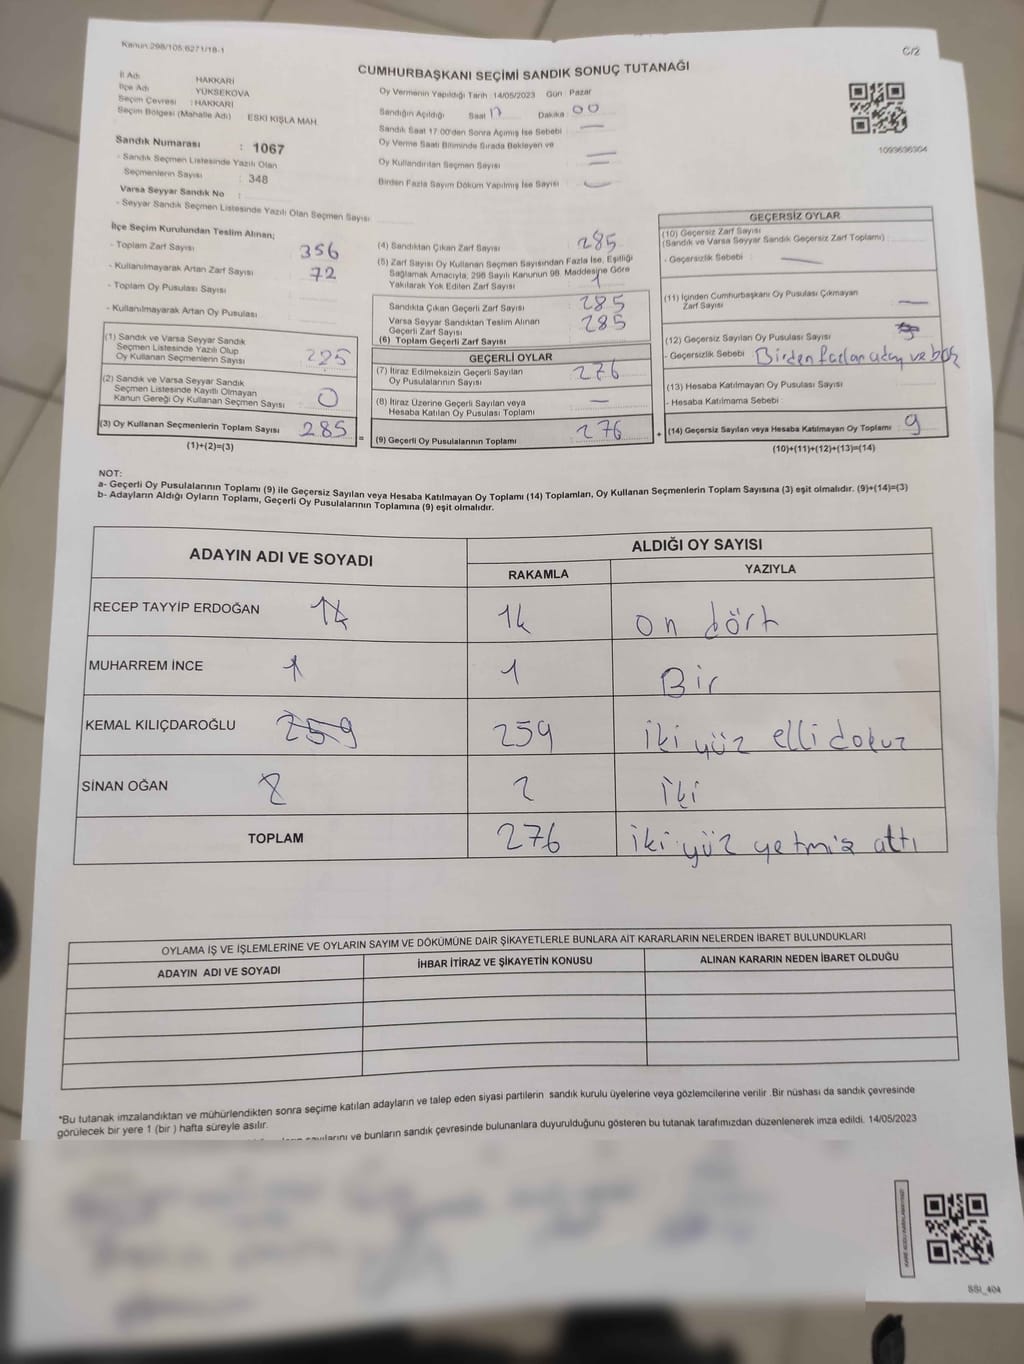 Kanun:298/105;6271/18-1
C/2
CUMHURBAŞKANI SEÇİMİ SANDIK SONUÇ TUTANAĞI
İl Adı HAKKARİ
İlçe Adı YÜKSEKOVA
Seçim Çevresi : HAKKARİ
Seçim Bölgesi (Mahalle Adı) : ESKİ KIŞLA MAH.
Sandık Numarası : 1067
- Sandık Seçmen Listesinde Yazılı Olan
Seçmenlerin Sayısı : 348
Varsa Seyyar Sandık No :
- Seyyar Sandık Seçmen Listesinde Yazılı Olan Seçmen Sayısı
Oy Vermenin Yapıldığı Tarih : 14/05/2023 Gün : Pazar
Sandığın Açıldığı Saat 17 Dakika : 00
Sandık Saat 17.00'den Sonra Açılmış İse Sebebi : —
Oy Verme Saati Bitiminde Sırada Bekleyen ve
Oy Kullandırılan Seçmen Sayısı
Birden Fazla Sayım Döküm Yapılmış İse Sayısı
1093636304
İlçe Seçim Kurulundan Teslim Alınan;
- Toplam Zarf Sayısı 356
- Kullanılmayarak Artan Zarf Sayısı 72
- Toplam Oy Pusulası Sayısı
- Kullanılmayarak Artan Oy Pusulası
(1) Sandık ve Varsa Seyyar Sandık
Seçmen Listesinde Yazılı Olup
Oy Kullanan Seçmenlerin Sayısı 285
(2) Sandık ve Varsa Seyyar Sandık
Seçmen Listesinde Kayıtlı Olmayan
Kanun Gereği Oy Kullanan Seçmen Sayısı 0
(3) Oy Kullanan Seçmenlerin Toplam Sayısı 285 =
(1)+(2)=(3)
(4) Sandıktan Çıkan Zarf Sayısı : 285
(5) Zarf Sayısı Oy Kullanan Seçmen Sayısından Fazla İse, Eşitliği
Sağlamak Amacıyla; 298 Sayılı Kanunun 98. Maddesine Göre
Yakılarak Yok Edilen Zarf Sayısı :
Sandıkta Çıkan Geçerli Zarf Sayısı : 285
Varsa Seyyar Sandıktan Teslim Alınan
Geçerli Zarf Sayısı : 285
(6) Toplam Geçerli Zarf Sayısı
GEÇERLİ OYLAR
(7) İtiraz Edilmeksizin Geçerli Sayılan
Oy Pusulalarının Sayısı 276
(8) İtiraz Üzerine Geçerli Sayılan veya
Hesaba Katılan Oy Pusulası Toplamı —
(9) Geçerli Oy Pusulalarının Toplamı 276 +
GEÇERSİZ OYLAR
(10) Geçersiz Zarf Sayısı
(Sandık ve Varsa Seyyar Sandık Geçersiz Zarf Toplamı) :
- Geçersizlik Sebebi : —
(11) İçinden Cumhurbaşkanı Oy Pusulası Çıkmayan
Zarf Sayısı —
(12) Geçersiz Sayılan Oy Pusulası Sayısı
- Geçersizlik Sebebi : Birden fazla aday ve boş
(13) Hesaba Katılmayan Oy Pusulası Sayısı :
- Hesaba Katılmama Sebebi :
(14) Geçersiz Sayılan veya Hesaba Katılmayan Oy Toplamı : 9
(10)+(11)+(12)+(13)=(14)
NOT:
a- Geçerli Oy Pusulalarının Toplamı (9) ile Geçersiz Sayılan veya Hesaba Katılmayan Oy Toplamı (14) Toplamları, Oy Kullanan Seçmenlerin Toplam Sayısına (3) eşit olmalıdır. (9)+(14)=(3)
b- Adayların Aldığı Oyların Toplamı, Geçerli Oy Pusulalarının Toplamına (9) eşit olmalıdır.
ADAYIN ADI VE SOYADI ALDIĞI OY SAYISI
RAKAMLA YAZIYLA
RECEP TAYYİP ERDOĞAN 14 14 on dört
MUHARREM İNCE 1 1 Bir
KEMAL KILIÇDAROĞLU 259 259 iki yüz elli dokuz
SİNAN OĞAN 2 iki
TOPLAM 276 iki yüz yetmiş altı
OYLAMA İŞ VE İŞLEMLERİNE VE OYLARIN SAYIM VE DÖKÜMÜNE DAİR ŞİKAYETLERLE BUNLARA AİT KARARLARIN NELERDEN İBARET BULUNDUKLARI
ADAYIN ADI VE SOYADI İHBAR İTİRAZ VE ŞİKAYETİN KONUSU ALINAN KARARIN NEDEN İBARET OLDUĞU
*Bu tutanak imzalandıktan ve mühürlendikten sonra seçime katılan adayların ve talep eden siyasi partilerin sandık kurulu üyelerine veya gözlemcilerine verilir. Bir nüshası da sandık çevresinde
görülecek bir yere 1 (bir ) hafta süreyle asılır.
ve bunların sandık çevresinde bulunanlara duyurulduğunu gösteren bu tutanak tarafımızdan düzenlenerek imza edildi. 14/05/2023
SSI_404